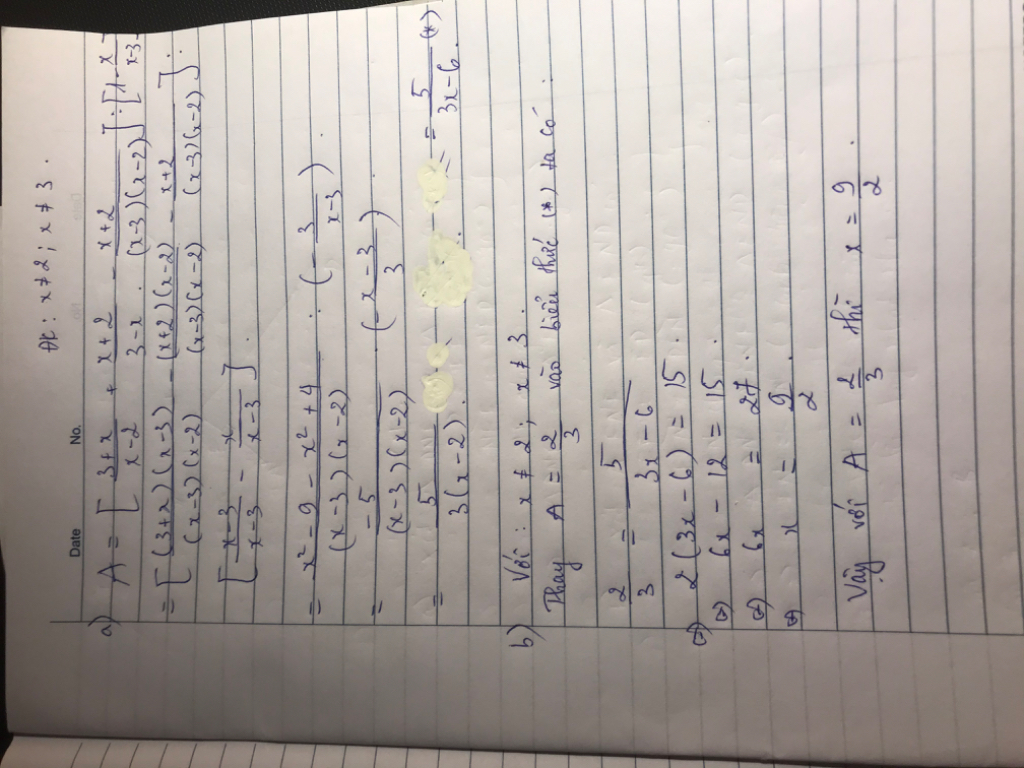 Đk : x ≠ 2 ; x ≠ 3 .
Date No.
a) A = [ (3+x)/(x-2) + (x+2)/(3-x) - (x+2)/((x-3)(x-2)) ] : [ 1 - x/(x-3)
= [ ((3+x)(x-3))/((x-3)(x-2)) - ((x+2)(x-2))/((x-3)(x-2)) - (x+2)/((x-3)(x-2)) ] :
[ (x-3)/(x-3) - x/(x-3) ] .
= (x² - 9 - x² + 4)/((x-3)(x-2)) : ( - 3/(x-3) ) .
= (-5)/((x-3)(x-2)) . ( - (x-3)/3 )
= 5/(3(x-2)) = 5/(3x-6) (*)
b) Với : x ≠ 2 ; x ≠ 3 .
Thay A = 2/3 vào biểu thức (*) ta có :
2/3 = 5/(3x-6)
(=) 2 (3x - 6) = 15 .
(=) 6x - 12 = 15 .
(=) 6x = 27 .
(=) x = 9/2 .
Vậy với A = 2/3 thì x = 9/2 .